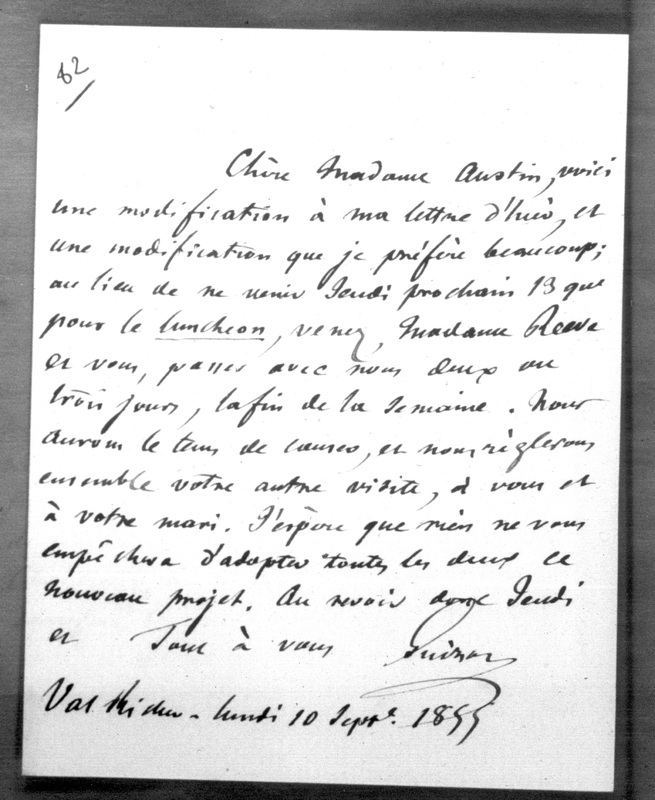 62
Chère Madame Austin, voici
une modification à ma lettre d'hier, et
une modification que je préfère beaucoup;
au lieu de ne venir Jeudi prochain 13 que
pour le luncheon, venez, Madame Reeve
et vous, passer avec nous deux ou
trois jours, la fin de la semaine. Nous
aurons le tems de causer, et nous règlerons
ensemble votre autre visite, à vous et
à votre mari. J'espère que rien ne vous
empêchera d'adopter toutes les deux ce
nouveau projet. Au revoir donc Jeudi
et Tout à vous Guizot
Val Richer - lundi 10 Septe. 1855